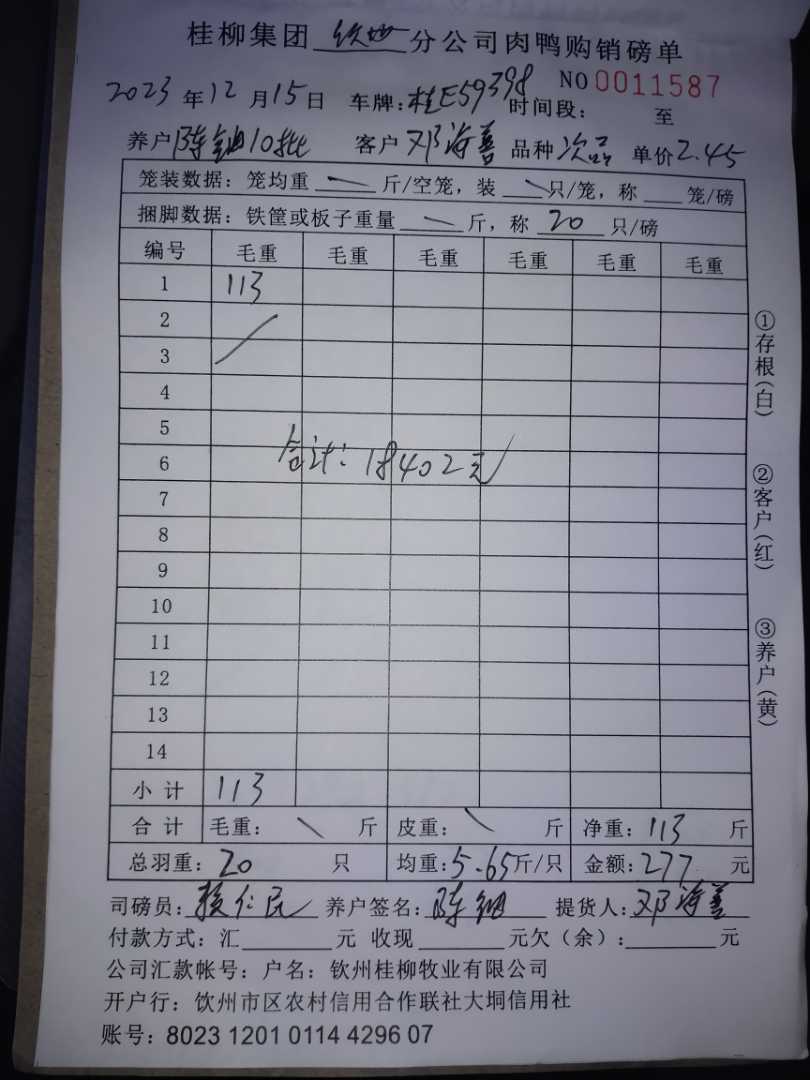 桂柳集团 钦州 分公司肉鸭购销磅单
2023年12月15日 车牌:桂E59398 时间段: 至 NO 0011587
养户 陈细10批 客户 邓海善 品种 次品 单价 2.45
笼装数据:笼均重 — 斤/空笼,装 \ 只/笼,称____笼/磅
捆脚数据:铁筐或板子重量 — 斤,称 20 只/磅
编号 毛重 毛重 毛重 毛重 毛重 毛重
1 113
2
3
4
5
6
合计:18402元
7
8
9
10
11
12
13
14
小计 113
合计 毛重: \ 斤 皮重: \ 斤 净重:113 斤
总羽重:20 只 均重:5.65斤/只 金额:277 元
司磅员: 仁民 养户签名:陈细 提货人:邓海善
付款方式:汇____元 收现____元欠(余):____元
公司汇款帐号:户名:钦州桂柳牧业有限公司
开户行:钦州市区农村信用合作联社大垌信用社
账号:8023 1201 0114 4296 07
①存根(白)
②客户(红)
③养户(黄)